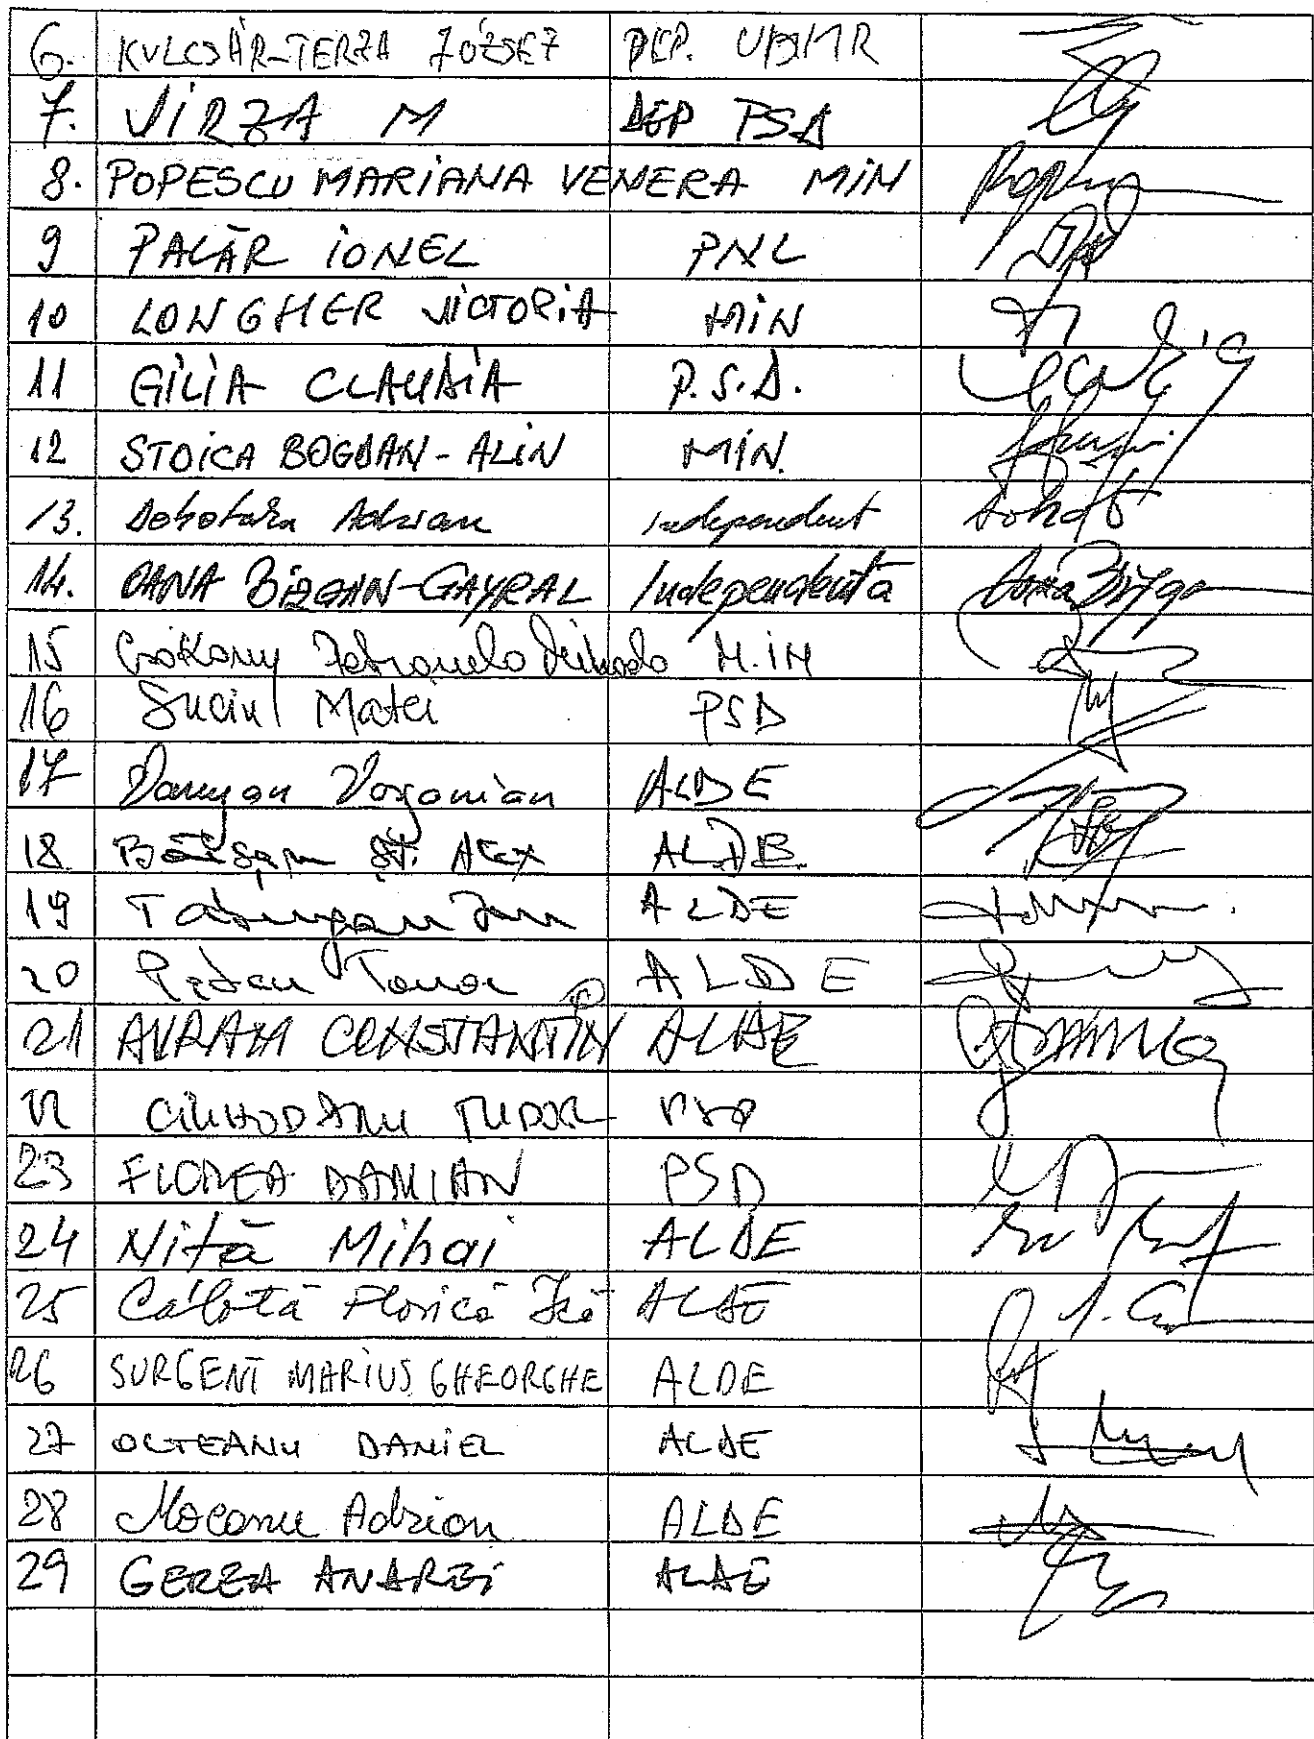 6. KULCSÁR-TERZA JÓZSEF DEP. UDMR
7. VIRZA M DEP PSD
8. POPESCU MARIANA VENERA MIN
9 PALĂR IONEL PNL
10 LONGHER VICTORIA MIN
11 GILIA CLAUDIA P.S.D.
12 STOICA BOGDAN-ALIN MIN.
13. Dohotaru Adrian Independent
14. OANA BÎZGAN-GAYRAL Independentă
15 Csokany Petronela Mihaela M.IN
16 Suciu Matei PSD
17 Varujan Vosganian ALDE
18 Băișanu Șt. Alex ALDE
19 ALDE
20 ALDE
21 AVRAM CONSTANTIN ALDE
22 CIUHODARU TUDOR PSD
23 FLOREA DAMIAN PSD
24 Niță Mihai ALDE
25 Calotă Florică Ică ALDE
26 SURGENT MARIUS GHEORGHE ALDE
27 OLTEANU DANIEL ALDE
28 Mocanu Adrian ALDE
29 GEREA ANDREI ALDE